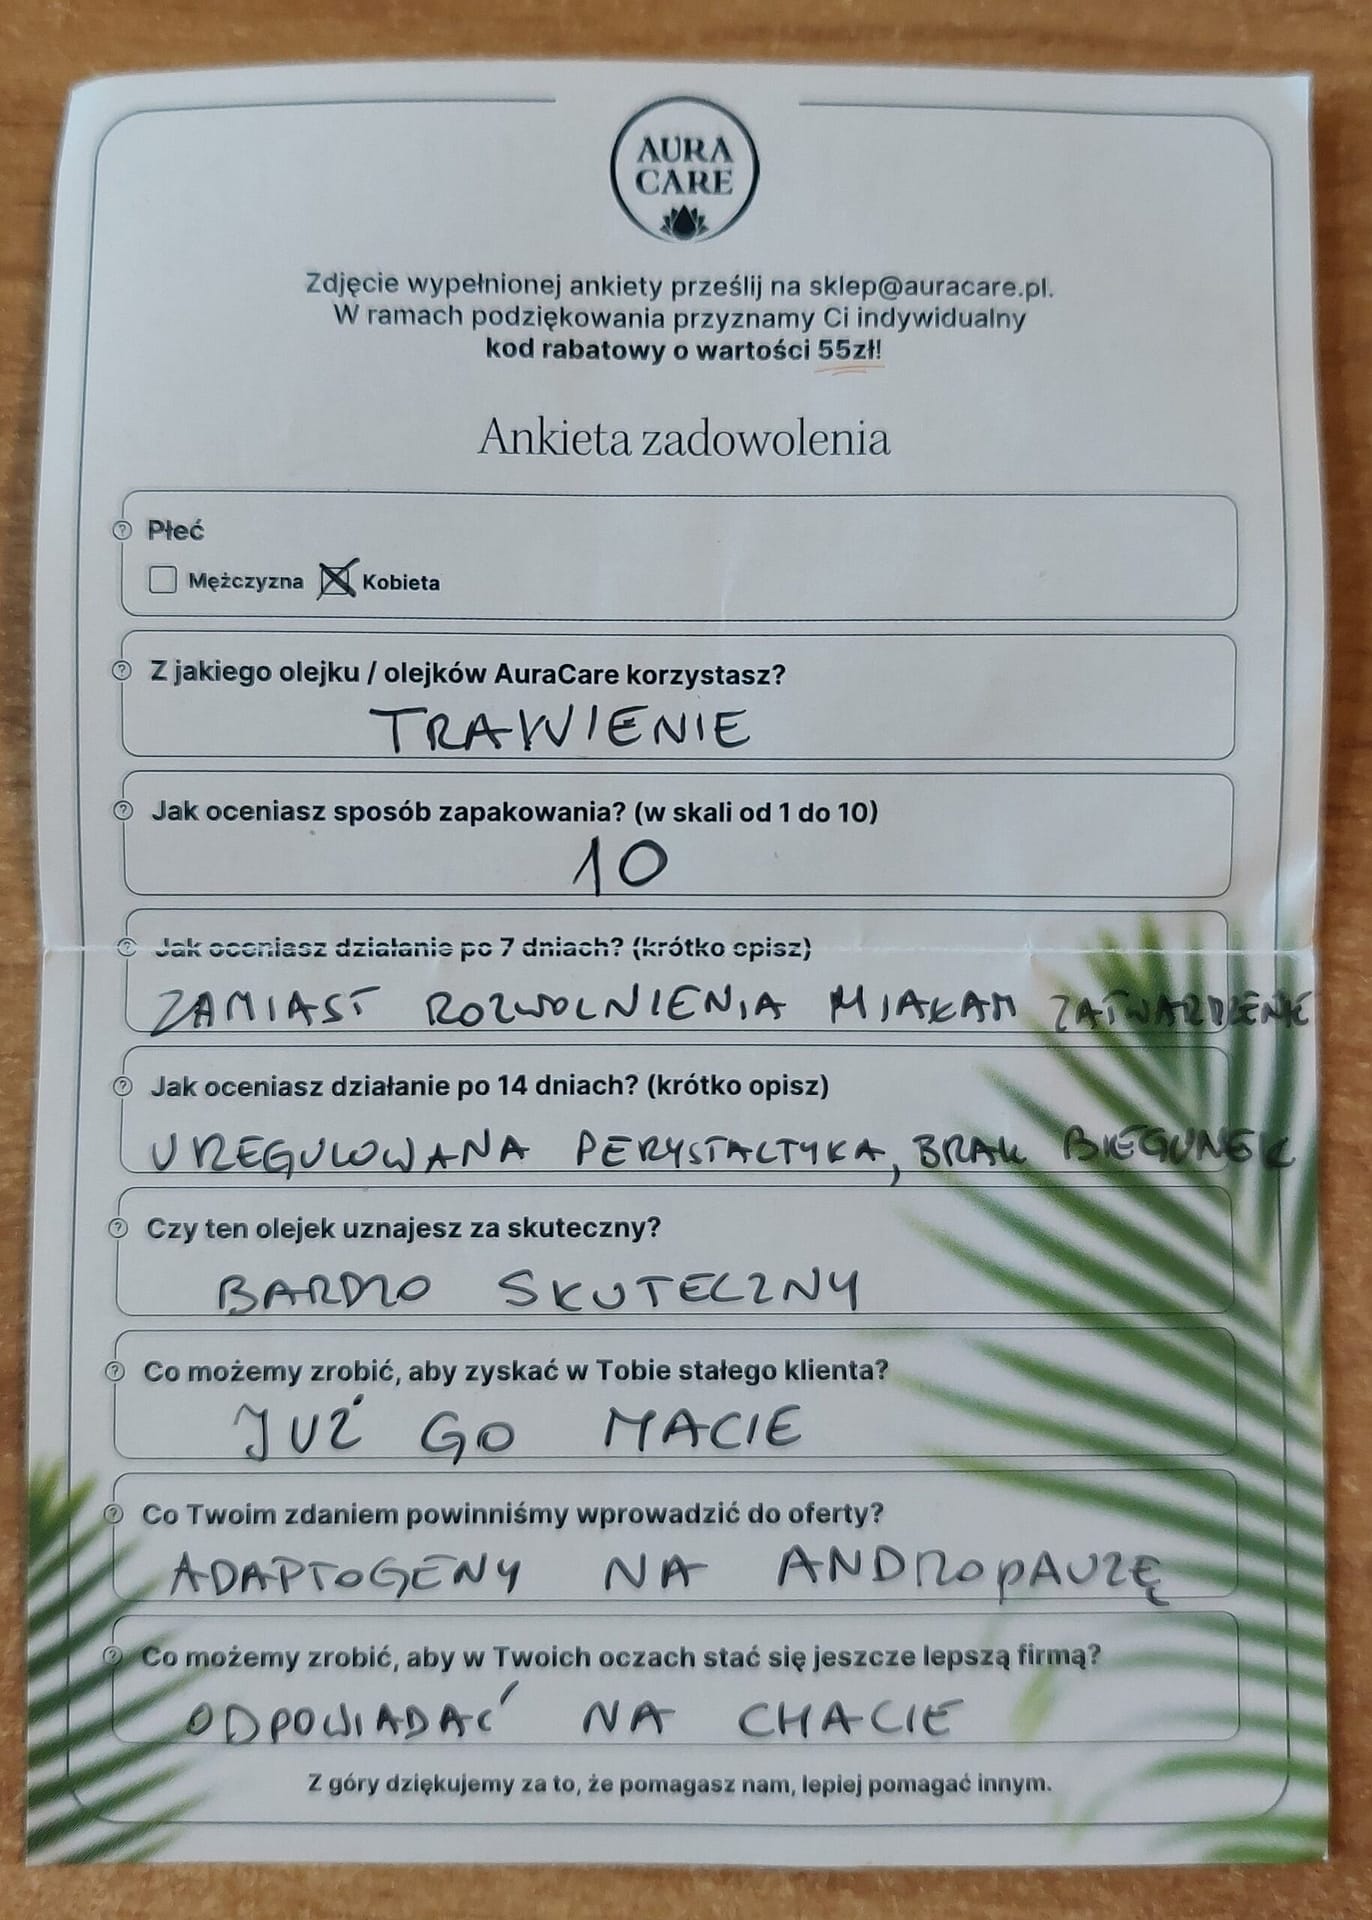 AURA
CARE
Zdjęcie wypełnionej ankiety prześlij na sklep@auracare.pl.
W ramach podziękowania przyznamy Ci indywidualny
kod rabatowy o wartości 55zł!
Ankieta zadowolenia
Płeć
Mężczyzna Kobieta
Z jakiego olejku / olejków AuraCare korzystasz?
TRAWIENIE
Jak oceniasz sposób zapakowania? (w skali od 1 do 10)
10
Jak oceniasz działanie po 7 dniach? (krótko opisz)
ZAMIAST ROZWOLNIENIA MIAŁAM ZATWARDZENIE
Jak oceniasz działanie po 14 dniach? (krótko opisz)
UREGULOWANA PERYSTALTYKA, BRAK BIEGUNEK
Czy ten olejek uznajesz za skuteczny?
BARDZO SKUTECZNY
Co możemy zrobić, aby zyskać w Tobie stałego klienta?
JUŻ GO MACIE
Co Twoim zdaniem powinniśmy wprowadzić do oferty?
ADAPTOGENY NA ANDROPAUZĘ
Co możemy zrobić, aby w Twoich oczach stać się jeszcze lepszą firmą?
ODPOWIADAĆ NA CHACIE
Z góry dziękujemy za to, że pomagasz nam, lepiej pomagać innym.